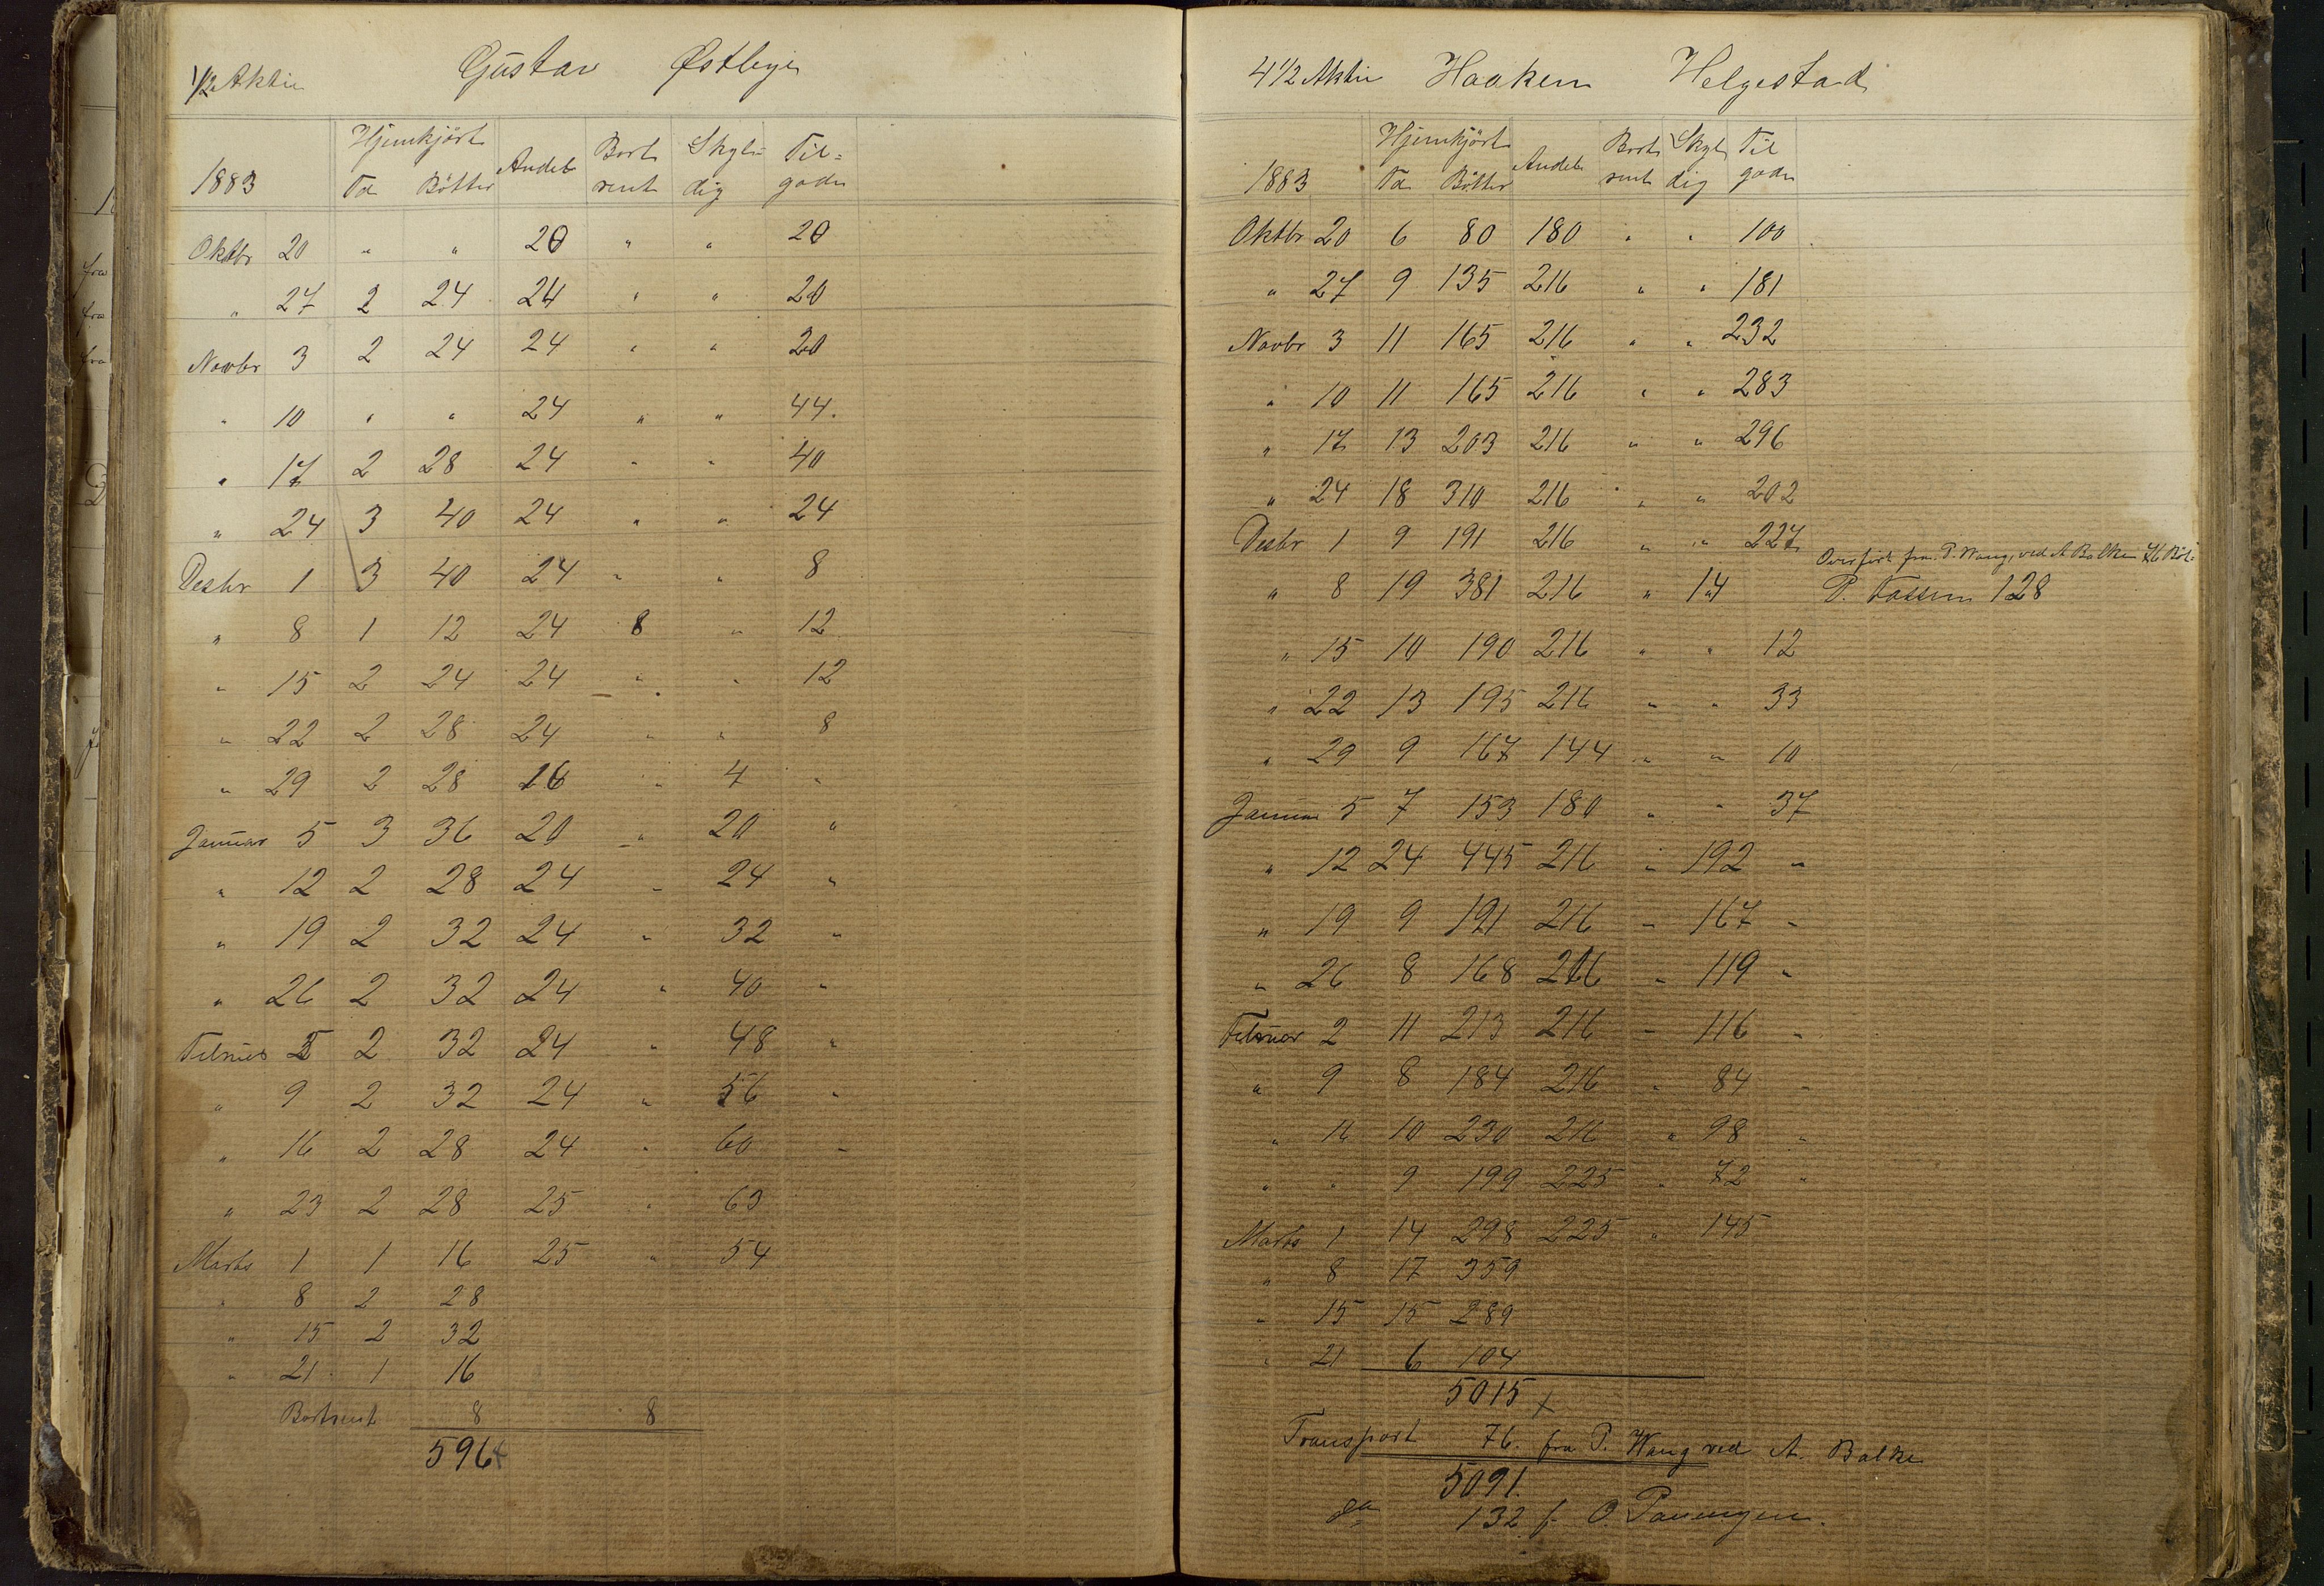 1/2 Aktie Gustav Østbye
Hjemkjørt Andel Bort Skyl= Til=
1883 Td Bøtter rent dig gode
Oktbr 20 " " 20 " " 20
" 27 2 24 24 " " 20
Novbr 3 2 24 24 " " 20
" 10 " " 24 " " 44.
" 17 2 28 24 " " 40
" 24 3 40 24 " " 24
Desbr 1 3 40 24 " " 8
" 8 1 12 24 8 " 12
" 15 2 24 24 " " 12
" 22 2 28 24 " " 8
" 29 2 28 16 " 4 "
Januar 5 3 36 20 " 20 "
" 12 2 28 24 " 24 "
" 19 2 32 24 " 32 "
" 26 2 32 24 " 40 "
Februar 2 2 32 24 " 48 "
" 9 2 32 24 " 56 "
" 16 2 28 24 " 60 "
" 23 2 28 25 " 63
Marts 1 1 16 25 " 54
" 8 2 28
" 15 2 32
" 21 1 16
Bortrent 8 8
596
4 1/2 Aktie Haaken Helgestad
Hjemkjørt Andel Bort Skyl Til
1883 Td Bøtter rent dig gode
Oktbr 20 6 80 180 " " 100
" 27 9 135 216 " " 181
Novbr 3 11 165 216 " " 232
" 10 11 165 216 " " 283
" 17 13 203 216 " " 296
" 24 18 310 216 " " 202
Desbr 1 9 191 216 " " 227
Overført fra P. Wang, ved A Balke 76 Bøt:
" 8 19 381 216 " 14 P. Fossum 128
" 15 10 190 216 " " 12
" 22 13 195 216 " " 33
" 29 9 167 144 " " 10
Januar 5 7 153 180 " " 37
" 12 24 445 216 " 192 "
" 19 9 191 216 " 167 "
" 26 8 168 216 " 119 "
Februar 2 11 213 216 " 116 "
" 9 8 184 216 " 84 "
" 16 10 230 216 " 98 "
" " 9 199 225 " 72 "
Marts 1 14 298 225 " 145
" 8 17 359
" 15 15 289
" 21 6 104
5015
Transport 76. fra P. Wang ved A. Balke
5091.
132 f. O.